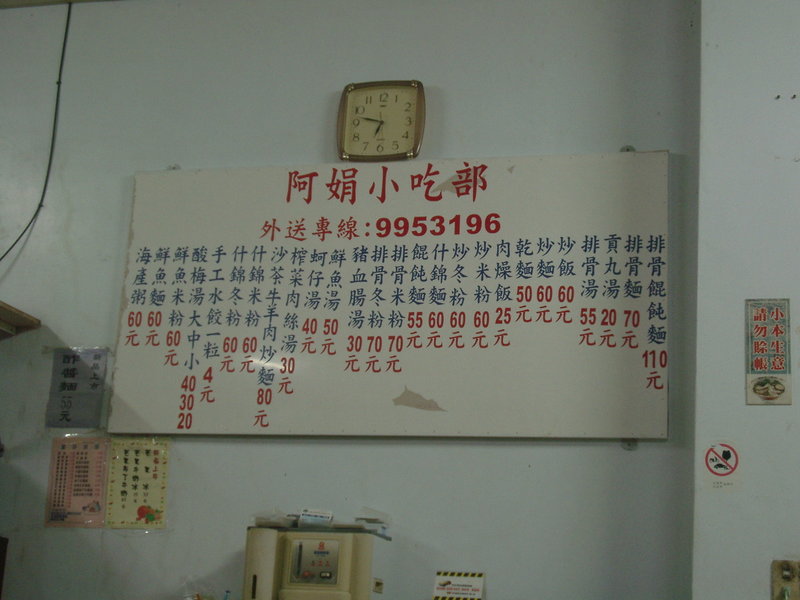 阿娟小吃部
外送專線:9953196
排骨餛飩麵110元
排骨麵70元
貢丸湯20元
排骨湯55元
炒飯60元
炒麵60元
乾麵50元
肉燥飯25元
炒米粉60元
炒冬粉60元
什錦麵60元
餛飩麵55元
排骨米粉70元
排骨冬粉70元
豬血腸湯30元
鮮魚湯50元
蚵仔湯40元
榨菜肉絲湯30元
沙茶牛羊肉炒麵80元
什錦米粉60元
什錦冬粉60元
手工水餃一粒4元
酸梅湯大中小403020
鮮魚米粉60元
鮮魚麵60元
海產粥60元
小本生意
請勿賒帳
新品上市
炸醬麵55元